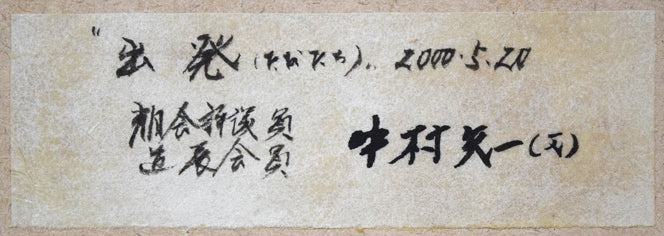 "出発(たびだち)" 2000.5.20
朔会評議員 中村矢一(弌)
道展会員